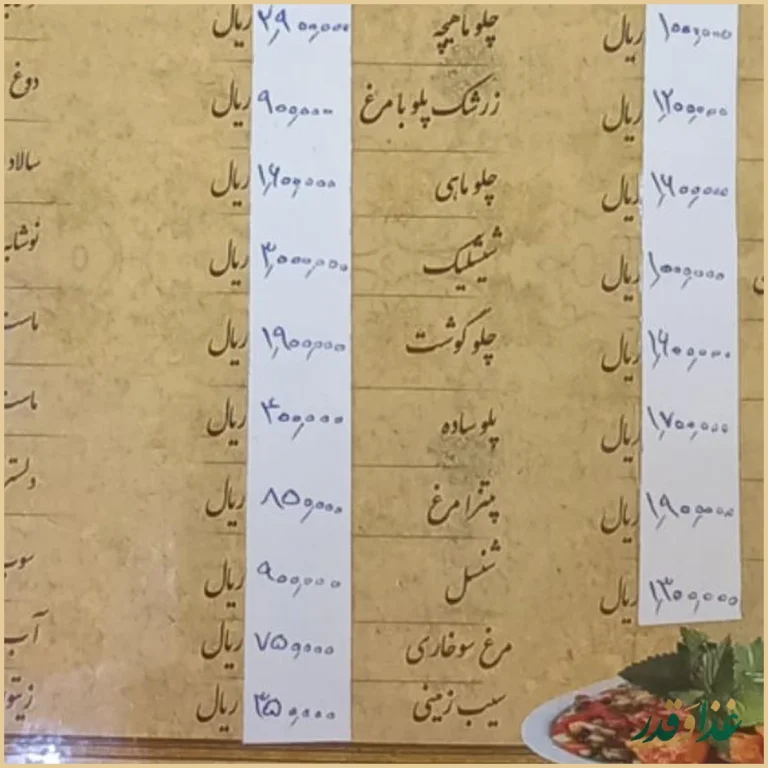 ۱,۰۰۰,۰۰۰ ریال
۱,۲۰۰,۰۰۰ ریال
۱,۶۰۰,۰۰۰ ریال
۱,۰۰۰,۰۰۰ ریال
۱,۶۰۰,۰۰۰ ریال
۱,۷۰۰,۰۰۰ ریال
۱,۹۰۰,۰۰۰ ریال
۱,۳۰۰,۰۰۰ ریال
چلو ماهیچه ۲,۹۰۰,۰۰۰ ریال
زرشک پلو با مرغ ۹۰۰,۰۰۰ ریال
چلو ماهی ۱,۶۰۰,۰۰۰ ریال
شیشلیک ۳,۰۰۰,۰۰۰ ریال
چلو گوشت ۱,۹۰۰,۰۰۰ ریال
پلو ساده ۳۰۰,۰۰۰ ریال
پیتزا مرغ ۸۵۰,۰۰۰ ریال
شنسل ۹۰۰,۰۰۰ ریال
مرغ سوخاری ۷۵۰,۰۰۰ ریال
سیب زمینی ۳۵۰,۰۰۰ ریال
دوغ
سالاد
نوشابه
ماست
ماست
دلستر
سوپ
آب
زیتو
غذا و قدر